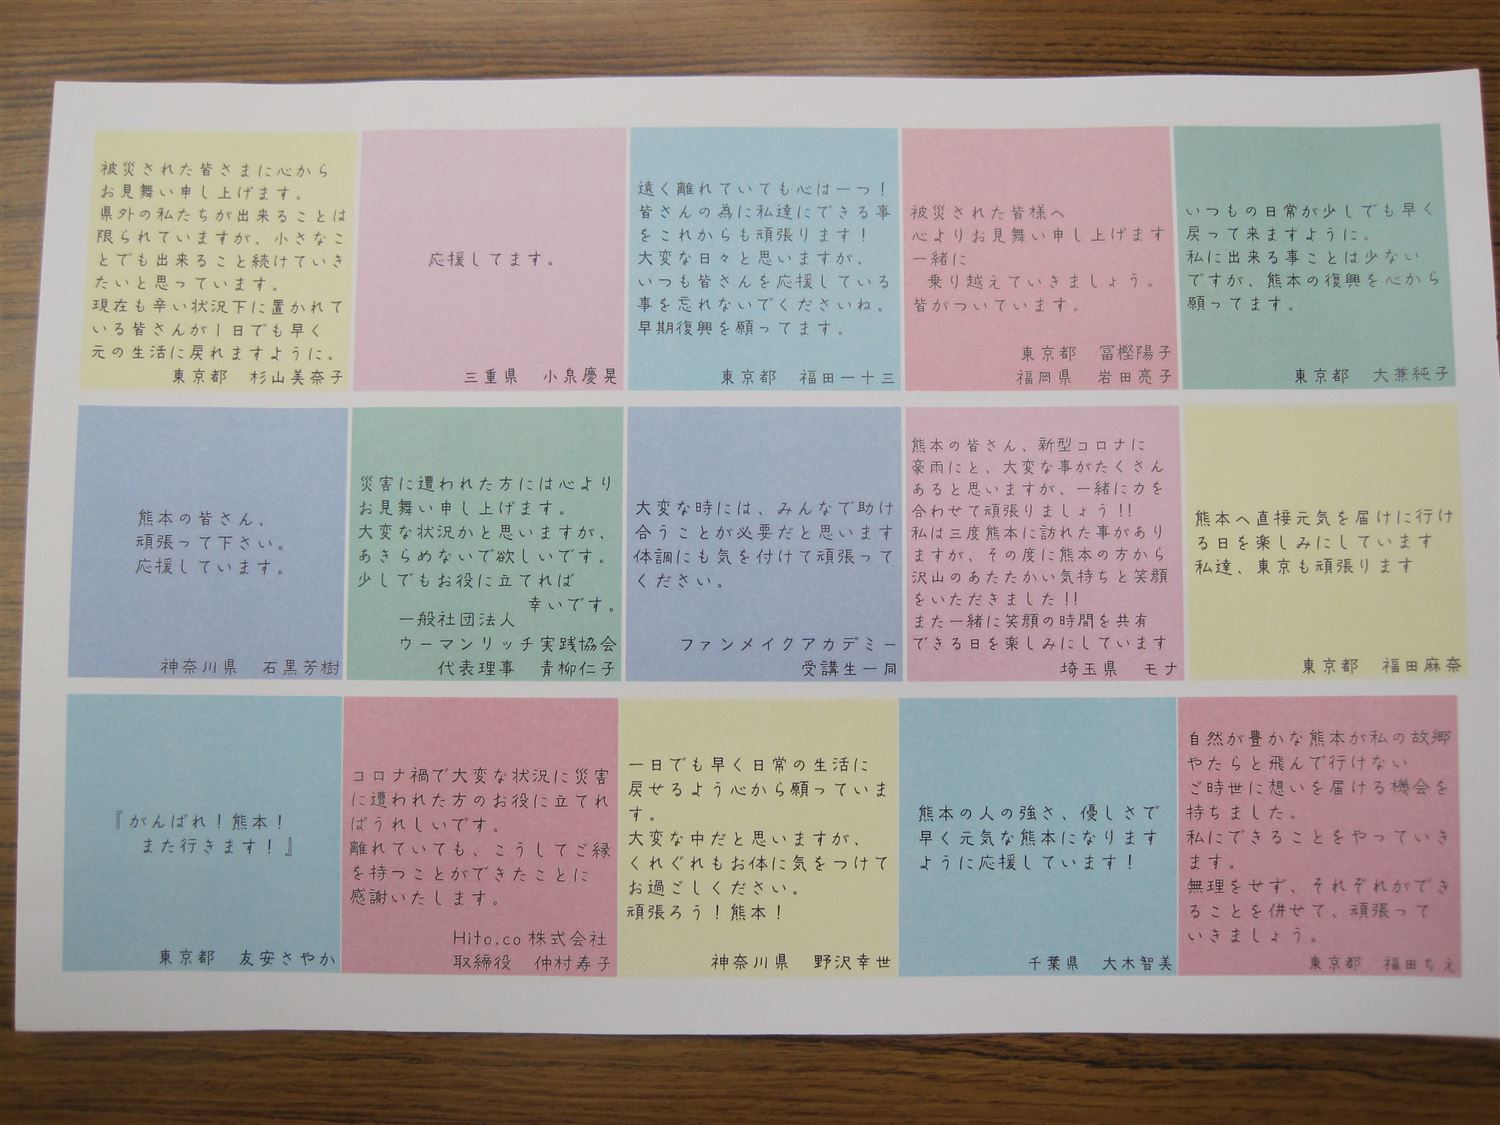 被災された皆さまに心から
お見舞い申し上げます。
県外の私たちが出来ることは
限られていますが、小さなこ
とでも出来ること続けていき
たいと思っています。
現在も辛い状況下に置かれて
いる皆さんが1日でも早く
元の生活に戻れますように。
東京都　杉山美奈子
応援してます。
三重県　小泉慶晃
遠く離れていても心は一つ！
皆さんの為に私達にできる事
をこれからも頑張ります！
大変な日々と思いますが、
いつも皆さんを応援している
事を忘れないでくださいね。
早期復興を願ってます。
東京都　福田一十三
被災された皆様へ
心よりお見舞い申し上げます
一緒に
乗り越えていきましょう。
皆がついています。
東京都　冨樫陽子
福岡県　岩田亮子
いつもの日常が少しでも早く
戻って来ますように。
私に出来る事ことは少ない
ですが、熊本の復興を心から
願ってます。
東京都　大兼純子
熊本の皆さん、
頑張って下さい。
応援しています。
神奈川県　石黒芳樹
災害に遭われた方には心より
お見舞い申し上げます。
大変な状況かと思いますが、
あきらめないで欲しいです。
少しでもお役に立てれば
幸いです。
一般社団法人
ウーマンリッチ実践協会
代表理事　青柳仁子
大変な時には、みんなで助け
合うことが必要だと思います
体調にも気を付けて頑張って
ください。
ファンメイクアカデミー
受講生一同
熊本の皆さん、新型コロナに
豪雨にと、大変な事がたくさん
あると思いますが、一緒に力を
合わせて頑張りましょう!!
私は三度熊本に訪れた事があり
ますが、その度に熊本の方から
沢山のあたたかい気持ちと笑顔
をいただきました!!
また一緒に笑顔の時間を共有
できる日を楽しみにしています
埼玉県　モナ
熊本へ直接元気を届けに行け
る日を楽しみにしています
私達、東京も頑張ります
東京都　福田麻奈
『がんばれ！熊本！
また行きます！』
東京都　友安さやか
コロナ禍で大変な状況に災害
に遭われた方のお役に立てれ
ばうれしいです。
離れていても、こうしてご縁
を持つことができたことに
感謝いたします。
Hito.co株式会社
取締役　仲村寿子
一日でも早く日常の生活に
戻せるよう心から願っていま
す。
大変な中だと思いますが、
くれぐれもお体に気をつけて
お過ごしください。
頑張ろう！熊本！
神奈川県　野沢幸世
熊本の人の強さ、優しさで
早く元気な熊本になります
ように応援しています！
千葉県　大木智美
自然が豊かな熊本が私の故郷
やたらと飛んで行けない
ご時世に想いを届ける機会を
持ちました。
私にできることをやっていき
ます。
無理をせず、それぞれができ
ることを併せて、頑張って
いきましょう。
東京都　福田ちえ